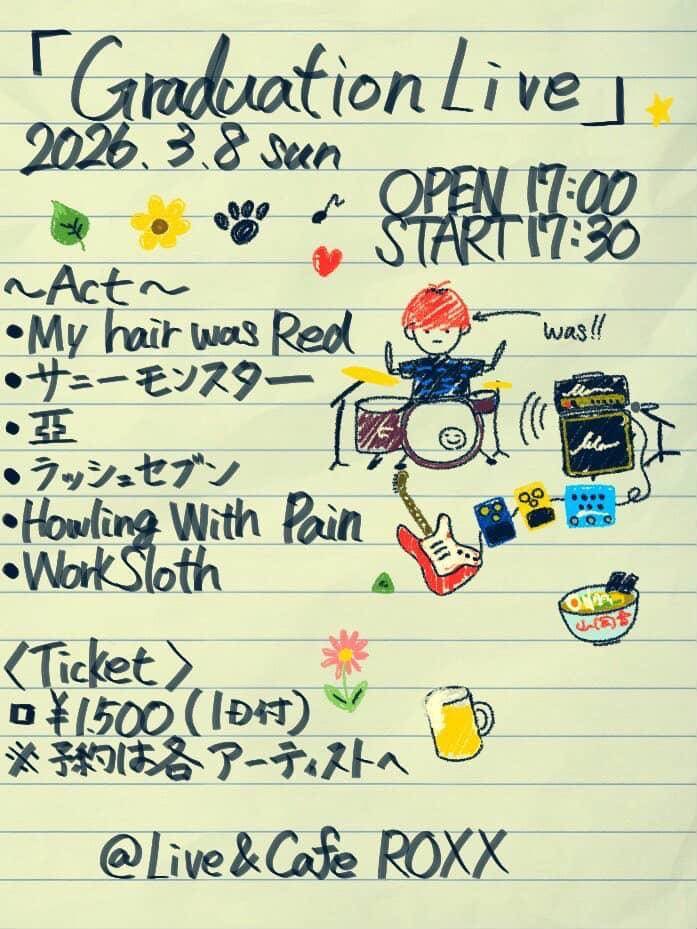 「Graduation Live」
2026.3.8 sun
OPEN 17:00
START 17:30
～Act～
・My hair was Red
was!!
・サニーモンスター
・亞
・ラッシュセブン
・Howling With Pain
・WorkSloth
〈Ticket〉
¥1.500(1D付)
※予約は各アーティストへ
@Live&Cafe ROXX